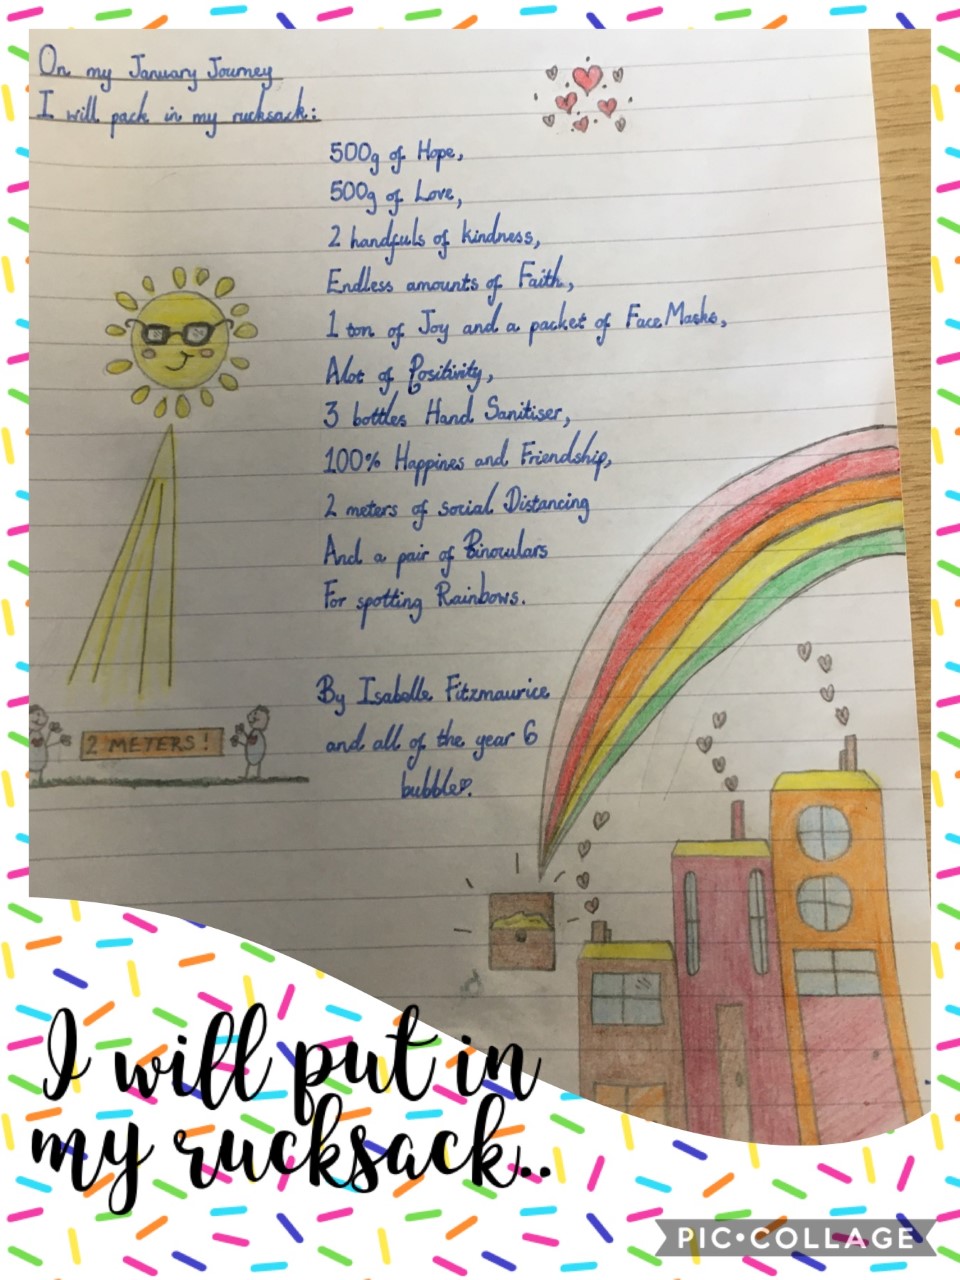 On my January Journey
I will pack in my rucksack:
500g of Hope,
500g of Love,
2 handfuls of kindness,
Endless amounts of Faith,
1 ton of Joy and a packet of Face Masks,
Alot of Positivity,
3 bottles Hand Sanitiser,
100% Happines and Friendship,
2 meters of social Distancing
And a pair of Binoculars
For spotting Rainbows.
By Isabelle Fitzmaurice
and all of the year 6
bubble.
2 METERS!
I will put in
my rucksack..
PIC•COLLAGE